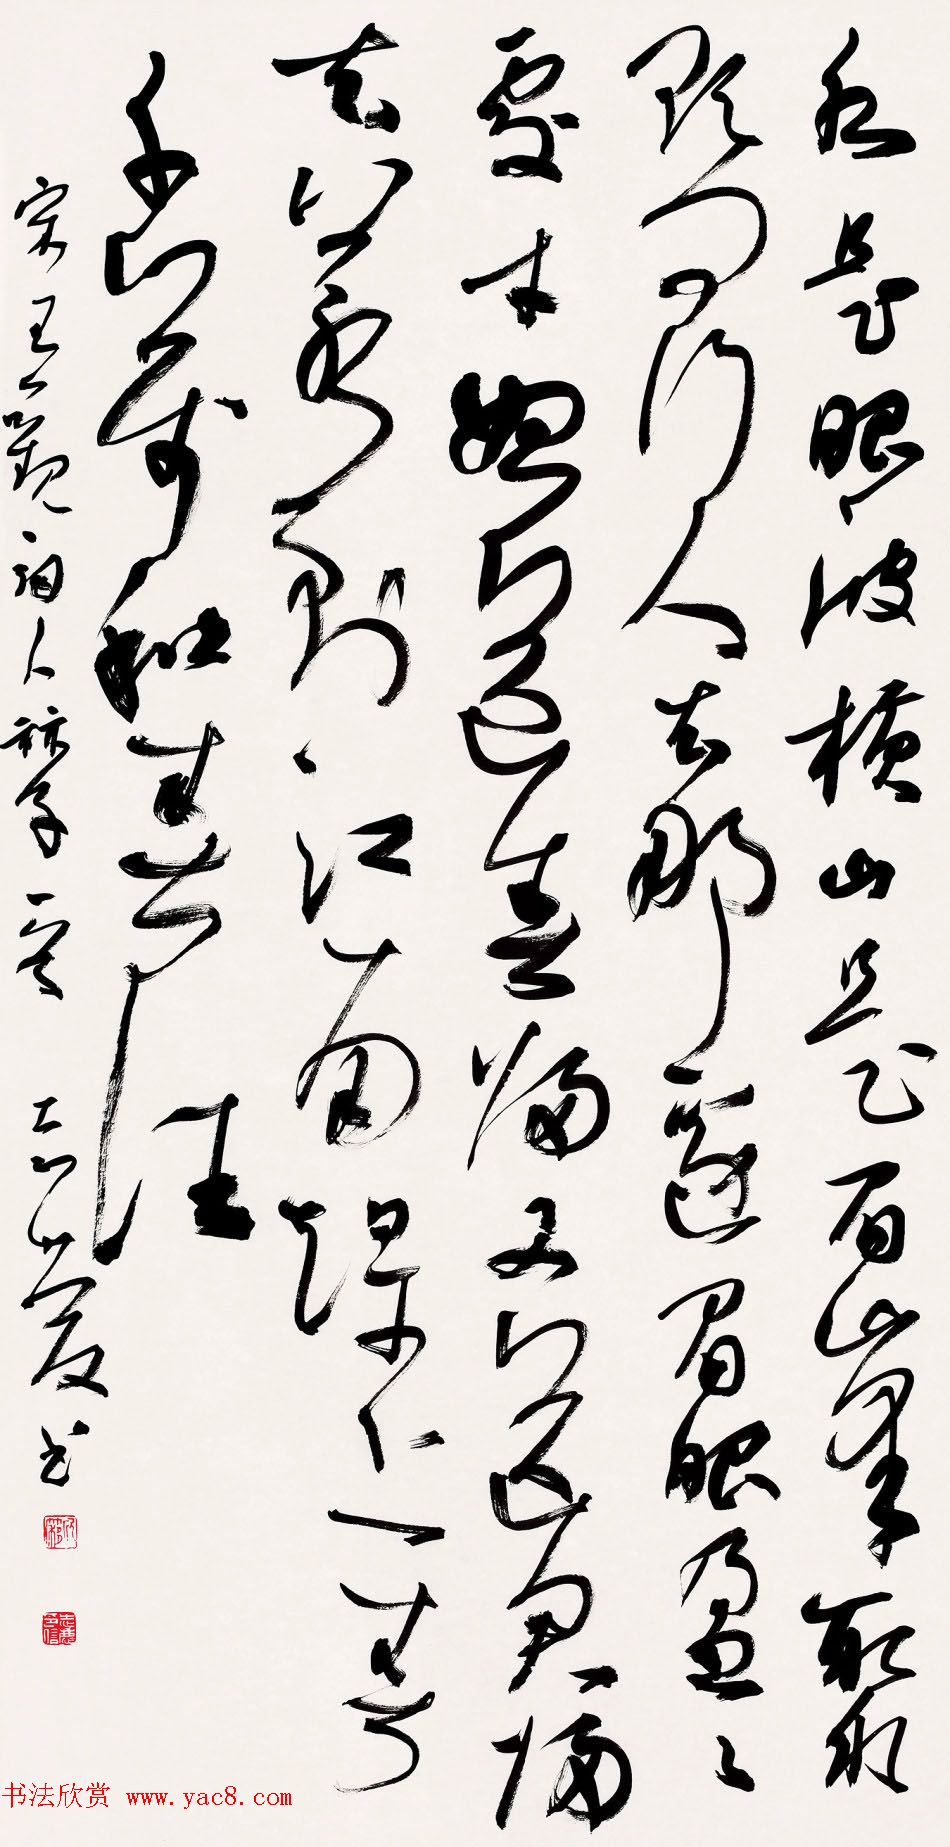 水是眼波横山是眉峯聚
欲问行人去那邊眉眼盈々
處才始送春歸又送君歸
去若到江南趕上春
千萬和春住
宋王觀詞卜算子一首 志书
书法欣赏 www.yac8.com